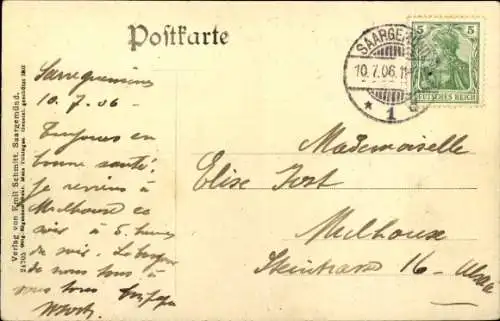 Postkarte
SAARGEMÜND
10.7.06.11
* 1
5 5
DEUTSCHES REICH
Sarreguemines
10.7.06 -
Toujours en
bonne santé.
Je reviens à
Mulhouse ce
soir à 5 heures
du soir. Le bonjour
de nous tous à
vous tous
Mademoiselle
Elise Jost
Mulhouse
Steinstrasse 16 - Alsace
Verlag von Emil Schmitt, Saargemünd.